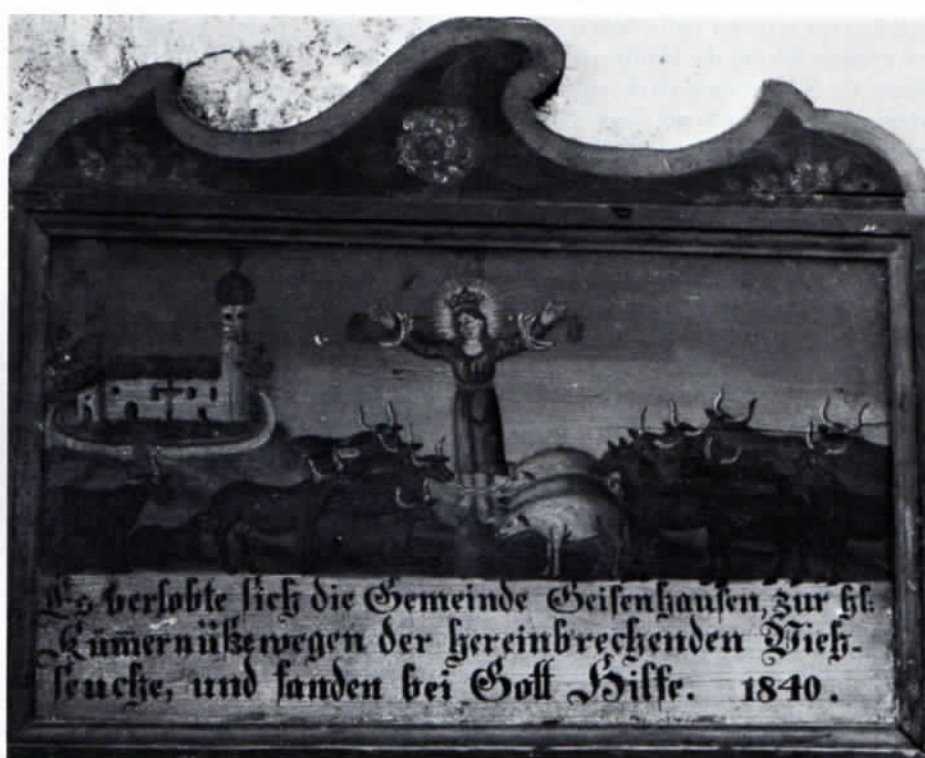 Es verlobte sich die Gemeinde Geisenhausen, zur hl:
Küm̄ernüß wegen der hereinbrechenden Vieh-
seuche, und fanden bei Gott Hilfe. 1840.